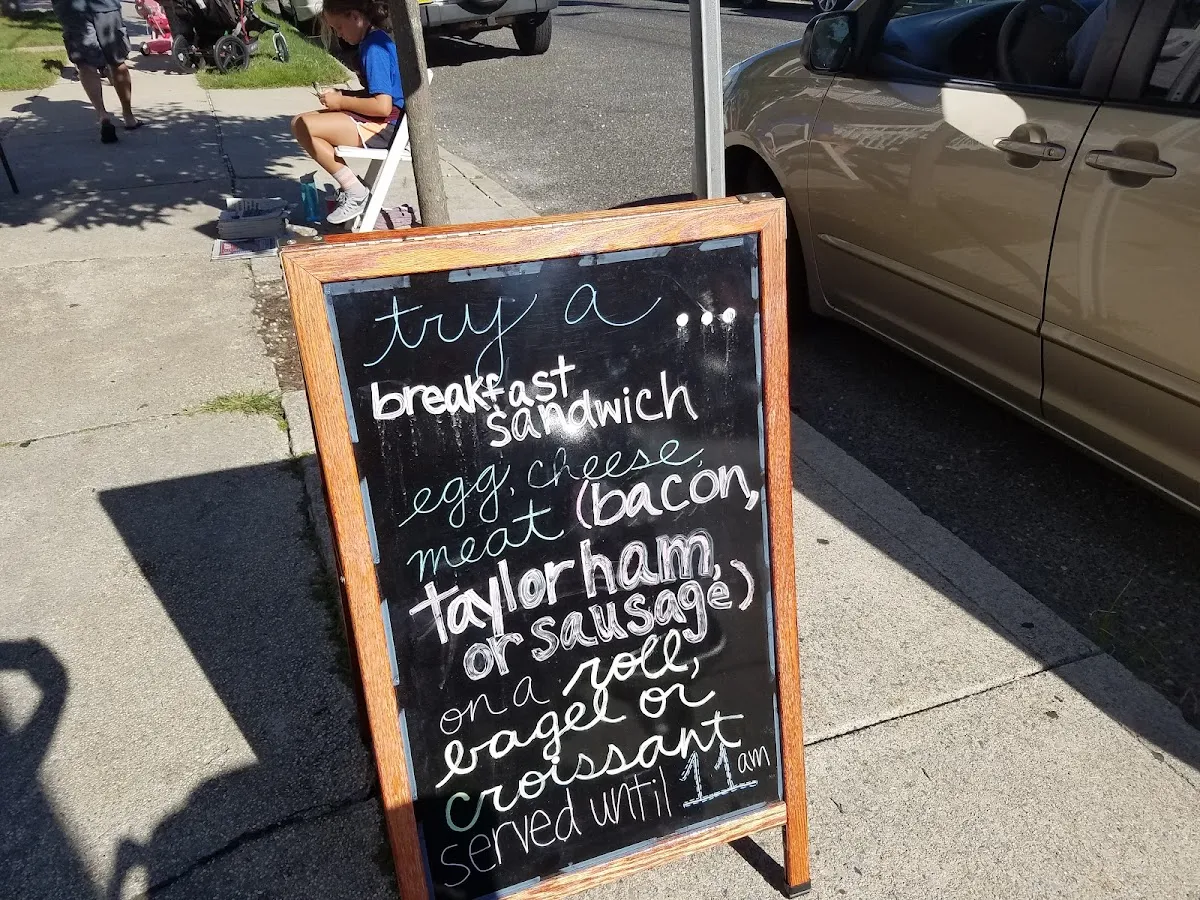 try a ...
breakfast
sandwich
egg, cheese,
meat (bacon,
taylor ham,
or sausage)
on a roll,
bagel or
croissant
served until 11 am